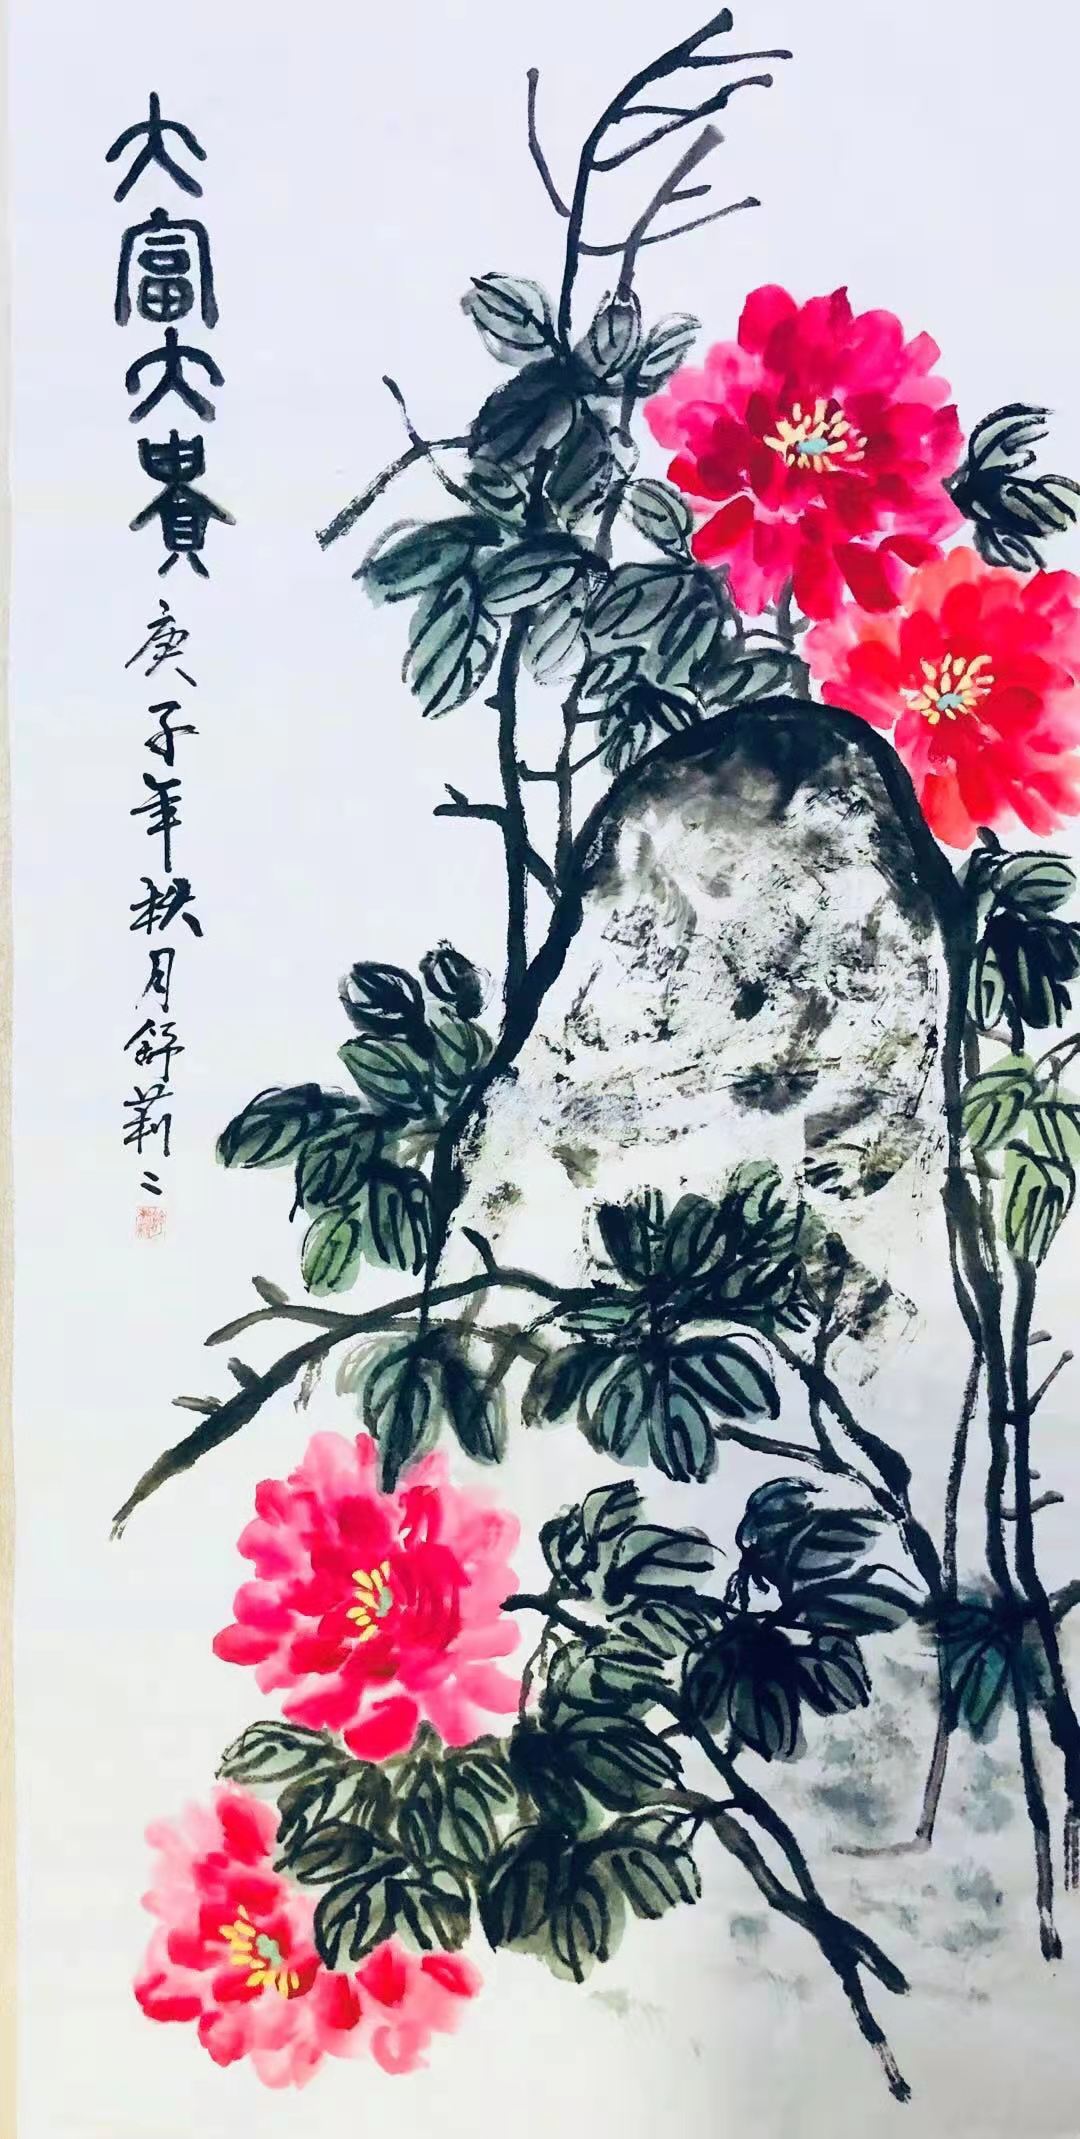 大富大貴
庚子年秋月舒莉